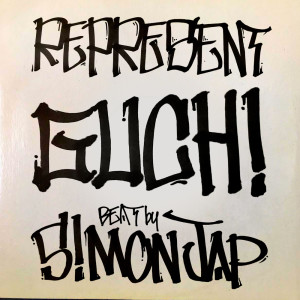 REPRESENT
GUCH!
BEATS by
S!MON JAP